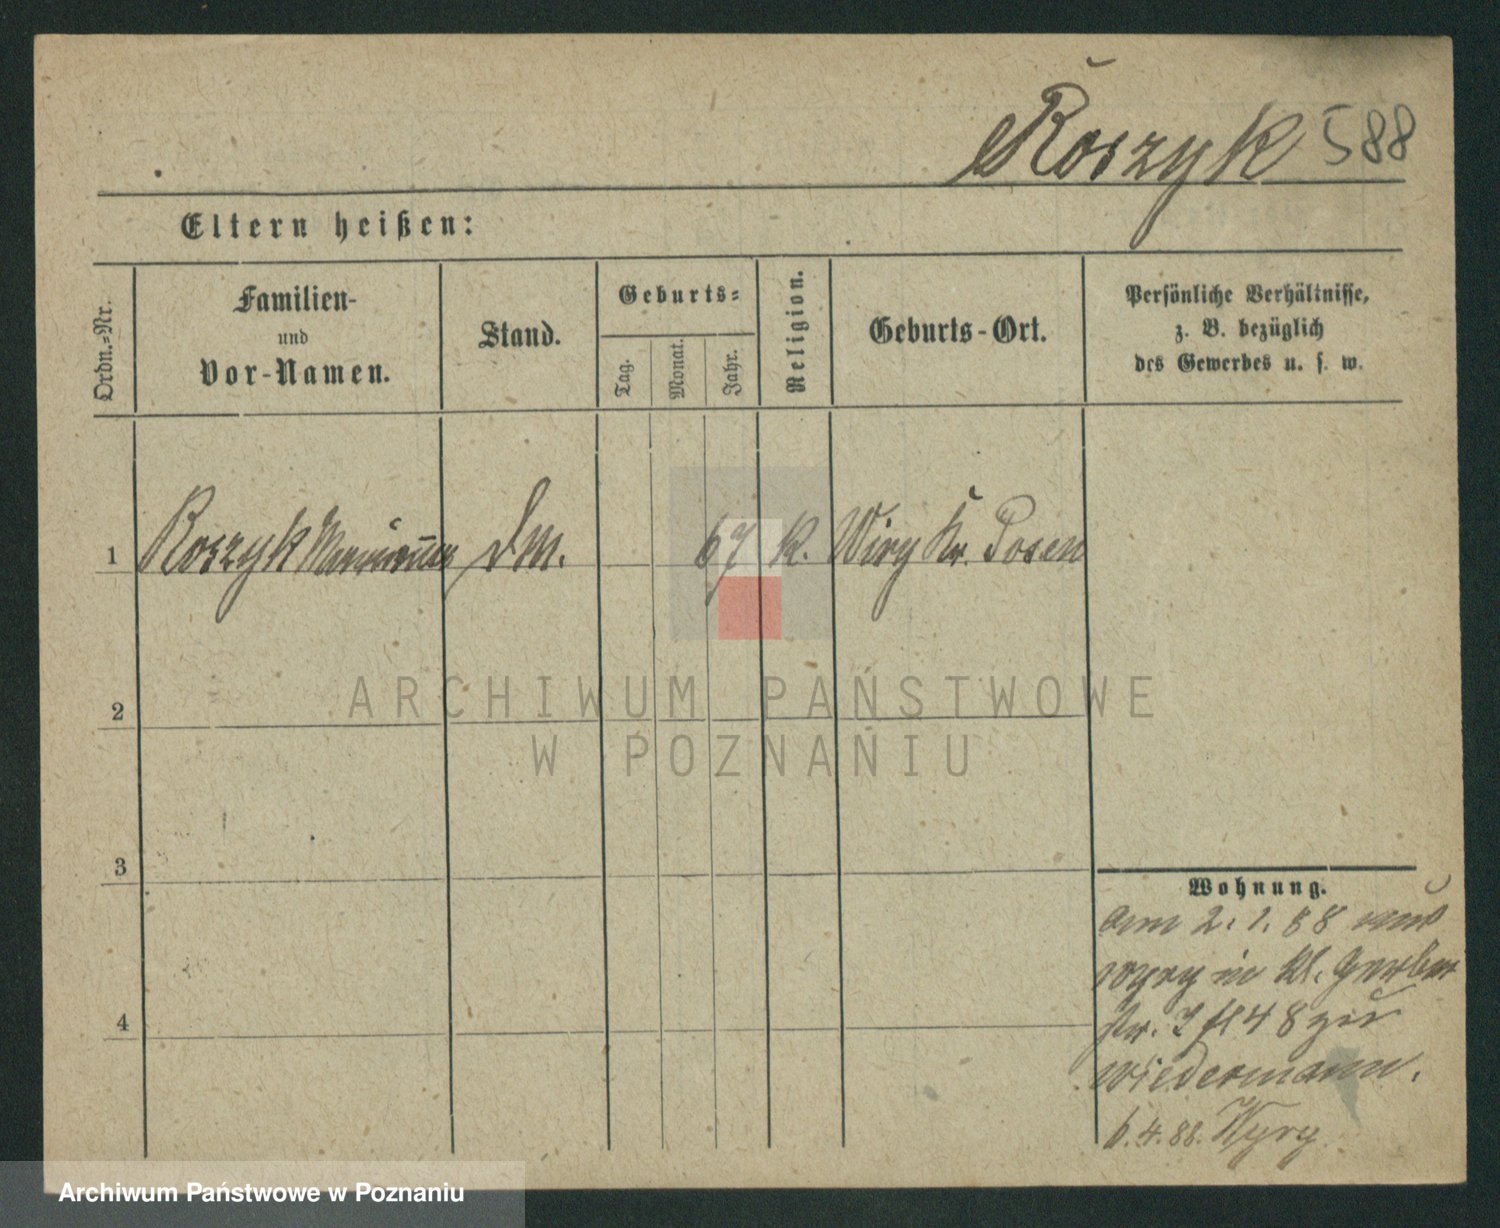 Roszyk 588
Eltern heißen:
Ordn.-Nr.
Familien-
und
Vor-Namen.
Stand.
Geburts-
Tag.
Monat.
Jahr.
Religion.
Geburts-Ort.
Persönliche Verhältnisse,
z. B. bezüglich
des Gewerbes u. s. w.
1 Roszyk Marianna DM. 67 K. Wiry Kr. Posen
2
3
4
Wohnung.
am 2. 1. 88 aus
Wyry in Kl. Gerber
str. 7 48 zu
Wiedermann.
6.4.88. Wyry
ARCHIWUM PAŃSTWOWE
W POZNANIU
Archiwum Państwowe w Poznaniu